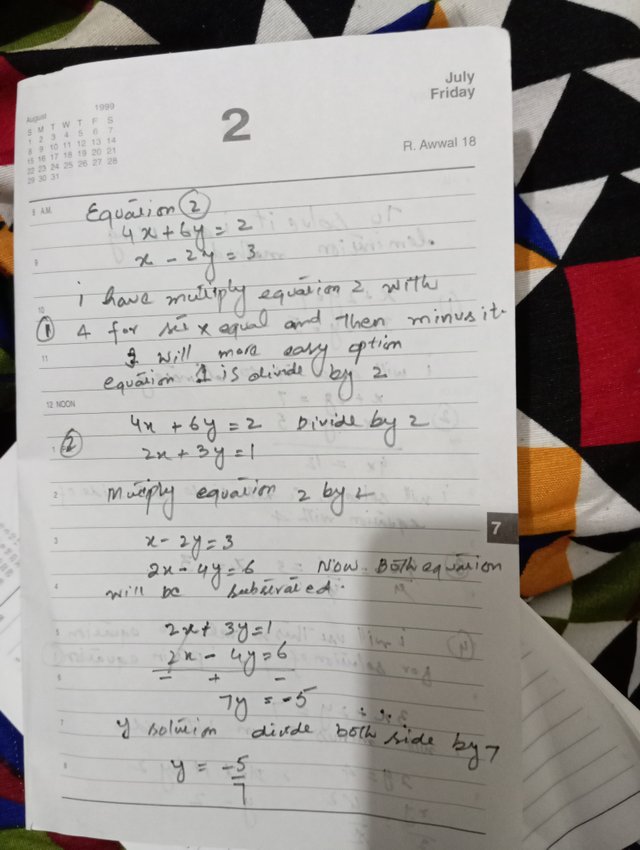 July
Friday
2
R. Awwal 18
August 1999
S M T W T F S
1 2 3 4 5 6 7
8 9 10 11 12 13 14
15 16 17 18 19 20 21
22 23 24 25 26 27 28
29 30 31
8 A.M.
Equation ②
4x + 6y = 2
x - 2y = 3
9
i have multiply equation 2 with
10
① 4 for x equal and then minus it.
11
I will more easy option
equation 1 is divide by 2
12 NOON
4x + 6y = 2 Divide by 2
1
② 2x + 3y = 1
2
Multiply equation 2 by 2
3
x - 2y = 3
2x - 4y = 6 Now Both equation
4
will be substrated.
5
2x + 3y = 1
2x - 4y = 6
- + -
6
7y = -5
7
y solution divide both side by 7
8
y = -5/7
7